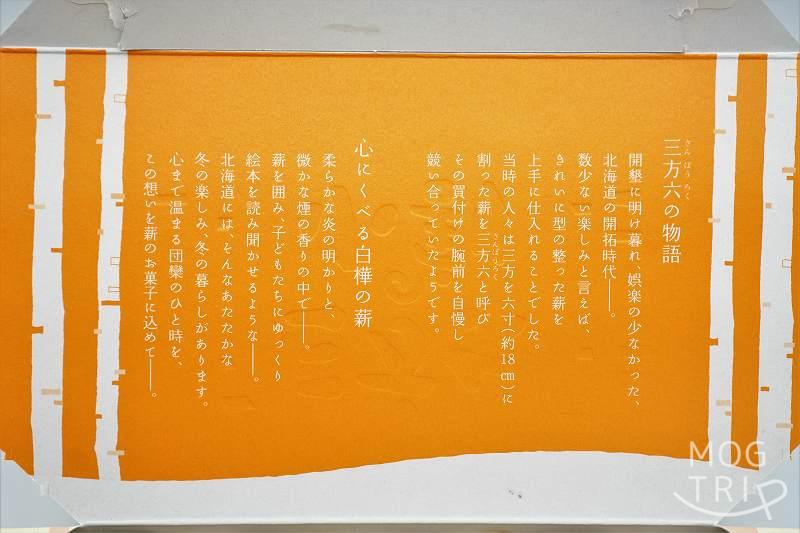 三方六の物語
さんぼうろく
開墾に明け暮れ、娯楽の少なかった、
北海道の開拓時代――。
数少ない楽しみと言えば、
きれいに型の整った薪を
上手に仕入れることでした。
当時の人々は三方を六寸（約18㎝）に
割った薪を三方六と呼び
さんぼうろく
その買付けの腕前を自慢し
競い合っていたようです。
心にくべる白樺の薪
柔らかな炎の明かりと、
微かな煙の香りの中で――。
薪を囲み、子どもたちにゆっくり
絵本を読み開かせるような――。
北海道には、そんなあたたかな
冬の楽しみ、冬の暮らしがあります。
心まで温まる団欒のひと時を、
この想いを薪のお菓子に込めて――。
MOG
TRIP